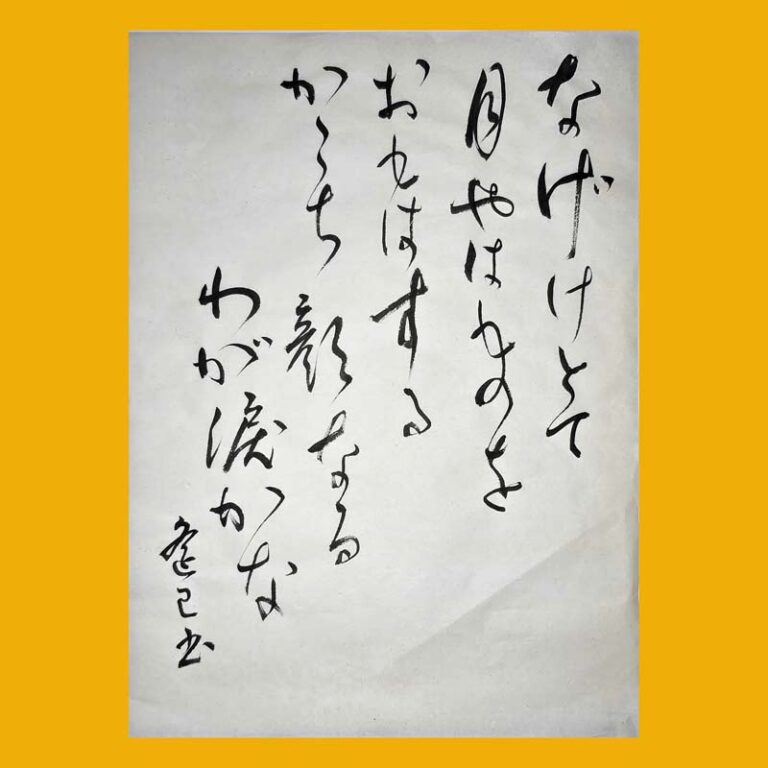 なげけとて
月やはものを
おもはする
かこち顔なる
わが涙かな